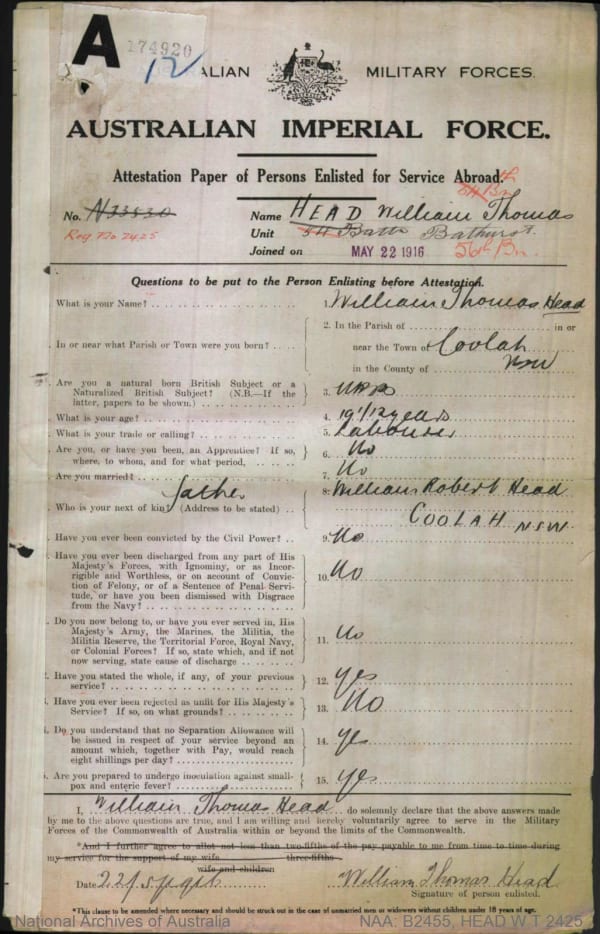 A
174920
12
ALIAN MILITARY FORCES.
AUSTRALIAN IMPERIAL FORCE.
Attestation Paper of Persons Enlisted for Service Abroad.
54th Bn
No. N33530 Name HEAD William Thomas
Reg No 2425 Unit 54 Battn Bathurst.
Joined on MAY 22 1916 56th Bn.
Questions to be put to the Person Enlisting before Attestation.
What is your Name? 1. William Thomas Head
In or near what Parish or Town were you born? 2. In the Parish of in or
near the Town of Coolah
in the County of NSW
Are you a natural born British Subject or a
Naturalized British Subject? (N.B.—If the
latter, papers to be shown.) 3.
What is your age? 4. 19 1/12 years
What is your trade or calling? 5. Labourer
Are you, or have you been, an Apprentice? If so,
where, to whom, and for what period, 6. No
Are you married? 7. No
father 8. William Robert Head
Who is your next of kin? (Address to be stated) COOLAH NSW.
Have you ever been convicted by the Civil Power? 9. No
Have you ever been discharged from any part of His
Majesty's Forces, with Ignominy, or as Incor-
rigible and Worthless, or on account of Convic-
tion of Felony, or of a Sentence of Penal Servi-
tude, or have you been dismissed with Disgrace
from the Navy? 10. No
Do you now belong to, or have you ever served in, His
Majesty's Army, the Marines, the Militia, the
Militia Reserve, the Territorial Force, Royal Navy,
or Colonial Forces? If so, state which, and if not
now serving, state cause of discharge 11. No
Have you stated the whole, if any, of your previous
service? 12. Yes
Have you ever been rejected as unfit for His Majesty's
Service? If so, on what grounds? 13. No
Do you understand that no Separation Allowance will
be issued in respect of your service beyond an
amount which, together with Pay, would reach
eight shillings per day? 14. Yes
Are you prepared to undergo inoculation against small-
pox and enteric fever? 15. Yes
I, William Thomas Head do solemnly declare that the above answers made
by me to the above questions are true, and I am willing and hereby voluntarily agree to serve in the Military
Forces of the Commonwealth of Australia within or beyond the limits of the Commonwealth.
*And I further agree to allot not less than two-fifths of the pay payable to me from time to time during
my service for the support of my wife three-fifths
wife and children
Date 22/5/1916 William Thomas Head
Signature of person enlisted.
*This clause to be amended where necessary and should be struck out in the case of unmarried men or widowers without children under 18 years of age.
National Archives of Australia NAA: B2455, HEAD W T 2425